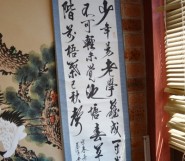 少年易老學難成一寸
不可輕未覺池塘春草
階前梧葉已秋聲